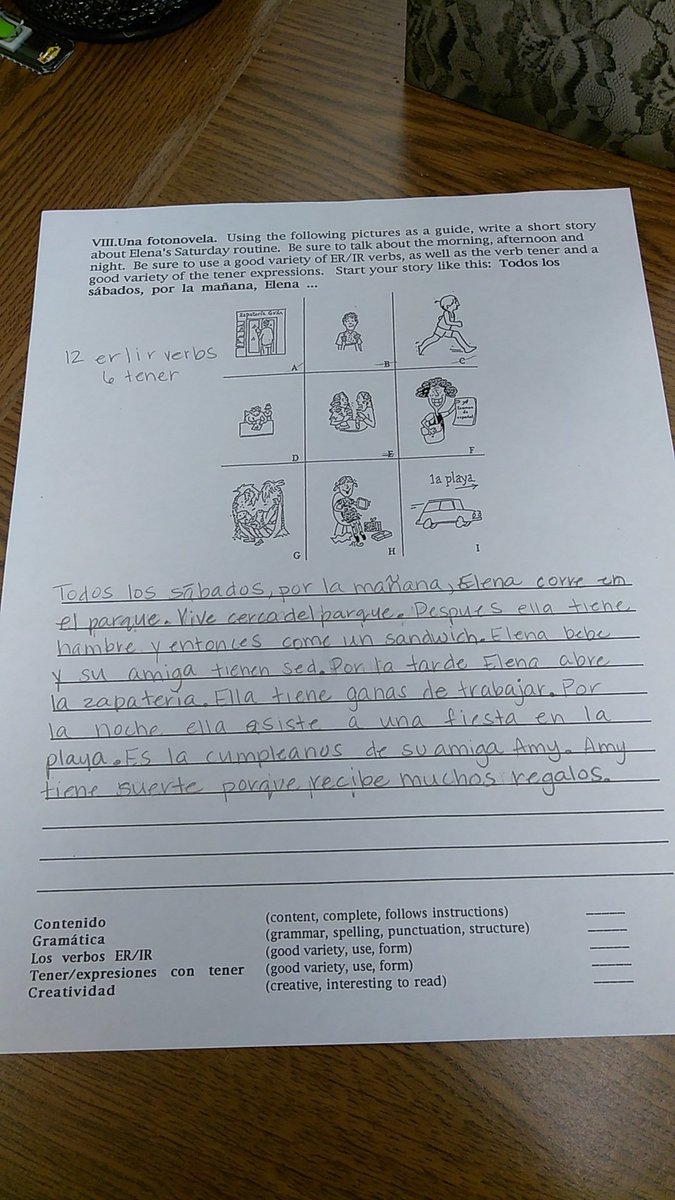 VIII.Una fotonovela. Using the following pictures as a guide, write a short story
about Elena's Saturday routine. Be sure to talk about the morning, afternoon and
night. Be sure to use a good variety of ER/IR verbs, as well as the verb tener and a
good variety of the tener expressions. Start your story like this: Todos los
sábados, por la mañana, Elena ...
12 er/ir verbs
6 tener
Zapatería Grán
A
B
C
D
E
F
la playa
G
H
I
Todos los sábados, por la mañana, Elena corre en
el parque. Vive cerca del parque. Despues ella tiene
hambre y entonces come un sandwich. Elena bebe
y su amiga tienen sed. Por la tarde Elena abre
la zapatería. Ella tiene ganas de trabajar. Por
la noche ella asiste a una fiesta en la
playa. Es la cumpleanos de su amiga Amy. Amy
tiene suerte porque recibe muchos regalos.
Contenido (content, complete, follows instructions)
Gramática (grammar, spelling, punctuation, structure)
Los verbos ER/IR (good variety, use, form)
Tener/expresiones con tener (good variety, use, form)
Creatividad (creative, interesting to read)